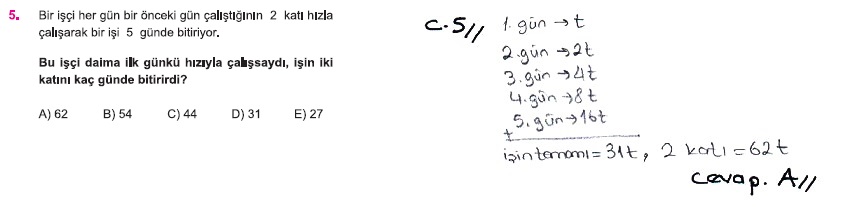 5. Bir işçi her gün bir önceki gün çalıştığının 2 katı hızla
çalışarak bir işi 5 günde bitiriyor.
Bu işçi daima ilk günkü hızıyla çalışsaydı, işin iki
katını kaç günde bitirirdi?
A) 62 B) 54 C) 44 D) 31 E) 27
C.5//
1. gün → t
2. gün → 2t
3. gün → 4t
4. gün → 8t
5. gün → 16t
+
işin tamamı = 31t, 2 katı = 62t
Cevap. A//